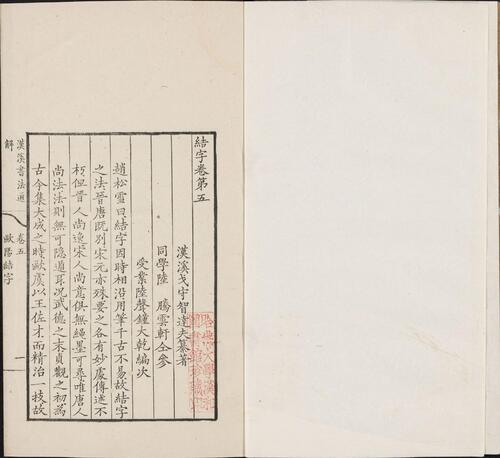 結字卷第五
漢溪戈守智達夫纂著
同學陸 騰雲軒仝參
受業陸聲鐘大乾編次
趙松雪曰結字因時相沿用筆千古不易故結字
之法晉唐旣別宋元亦殊要之各有妙處傳述不
朽但晉人尚逸宋人尚意俱無繩墨可尋唯唐人
尚法法則無可隱遁耳况武德之末貞觀之初爲
古今集大成之時歐虞以王佐才而精治一技故
漢溪書法通解 卷五 歐陽結字 一
哈佛大學漢和圖書館珍藏印